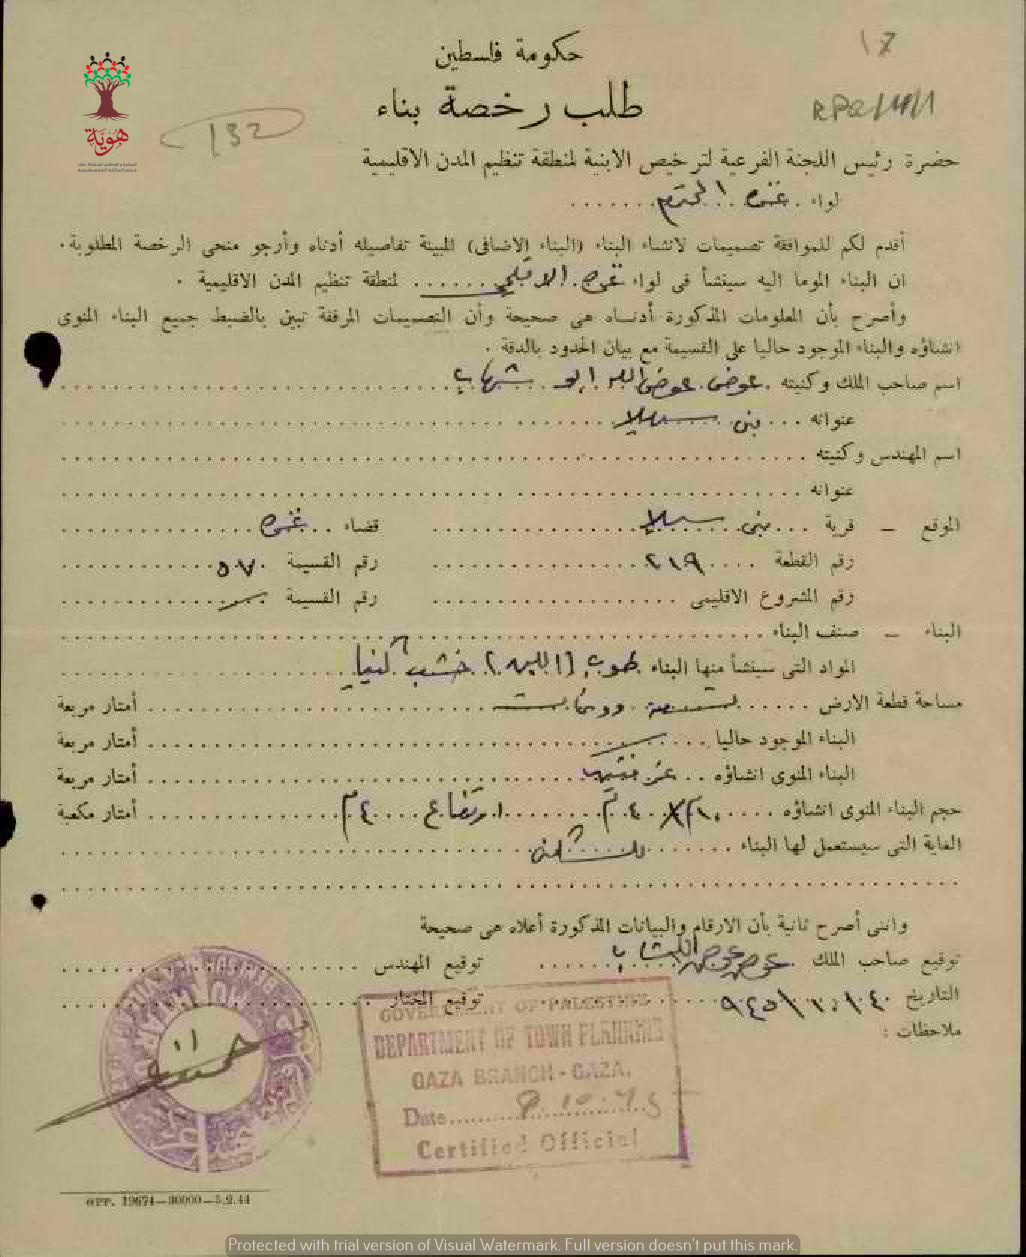 حكومة فلسطين
17
طلب رخصة بناء
RPQ/14/1
132
هوية
حضرة رئيس اللجنة الفرعية لترخيص الابنية لمنطقة تنظيم المدن الاقليمية
لواء . غزه المحترم .......
أقدم لكم للموافقة تصميمات لانشاء البناء (البناء الاضافى) المبينة تفاصيله أدناه وأرجو منحى الرخصة المطلوبة .
ان البناء الموما اليه سينشأ فى لواء غزه الاقليمي ...... لمنطقة تنظيم المدن الاقليمية .
وأصرح بأن المعلومات المذكورة أدناه هى صحيحة وأن التصميمات المرفقة تبين بالضبط جميع البناء المنوى
انشاؤه والبناء الموجود حاليا على القسيمة مع بيان الحدود بالدقة .
اسم صاحب الملك وكنيته . عوض عوض الله ابو شهاب
عنوانه ... بنى سهيلا
اسم المهندس وكنيته
عنوانه
الموقع — قرية ... بنى سهيلا قضاء .. غزه
رقم القطعة .... ٢١٩ رقم القسيمة ٥٠٧
رقم المشروع الاقليمى رقم القسيمة
البناء — صنف البناء
المواد التى سينشأ منها البناء طوب (اللبن) خشب كينيا
مساحة قطعة الارض ...... أمتار مربعة
البناء الموجود حاليا أمتار مربعة
البناء المنوى انشاؤه .. أمتار مربعة
حجم البناء المنوى انشاؤه ..... ارتفاع ٤٠ م أمتار مكعبة
الغاية التى سيستعمل لها البناء ....... للسكن
وانى أصرح ثانية بأن الارقام والبيانات المذكورة أعلاه هى صحيحة
توقيع صاحب الملك توقيع المهندس
التاريخ توقيع المختار
ملاحظات :
GOVERNMENT OF PALESTINE
DEPARTMENT OF TOWN PLANNING
GAZA BRANCH - GAZA.
Date 8.10.45
Certified Official
GPP. 19674—30000—5.2.44
Protected with trial version of Visual Watermark. Full version doesn't put this mark.